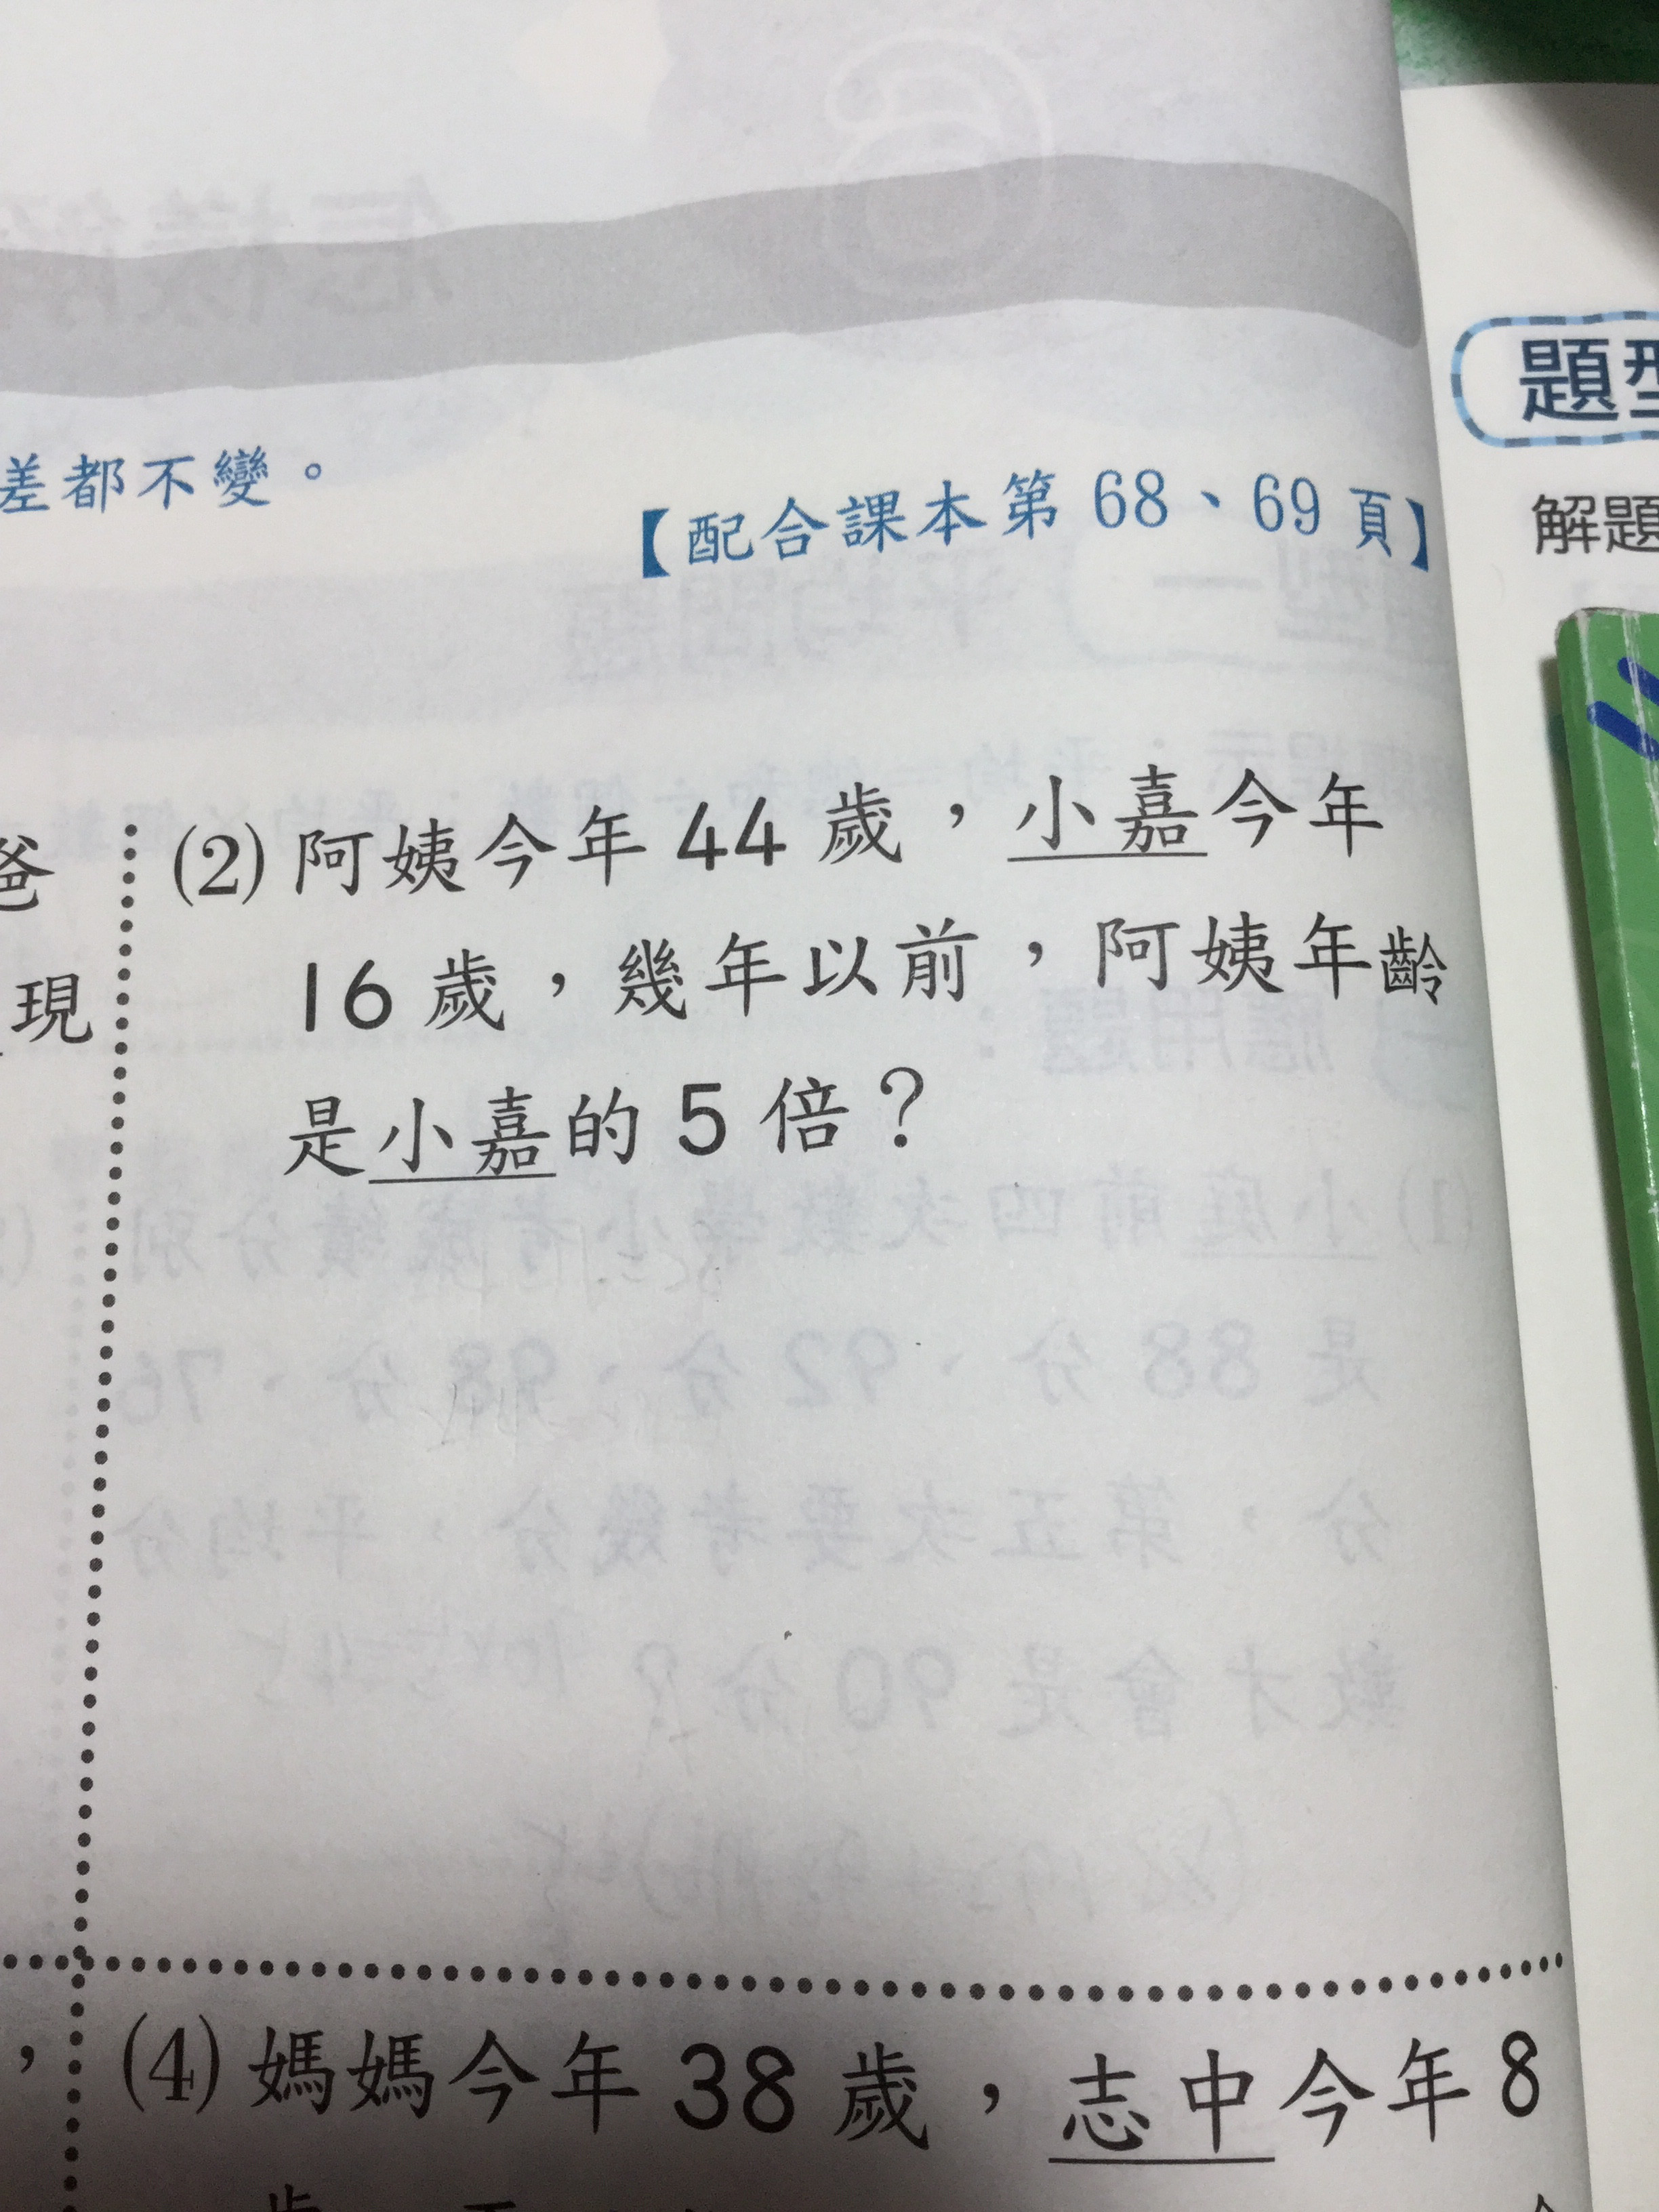 差都不變。
【配合課本第 68、69 頁】
題型
解題
爸
現
(2) 阿姨今年 44 歲，小嘉今年
16 歲，幾年以前，阿姨年齡
是小嘉的 5 倍？
，
(4) 媽媽今年 38 歲，志中今年 8